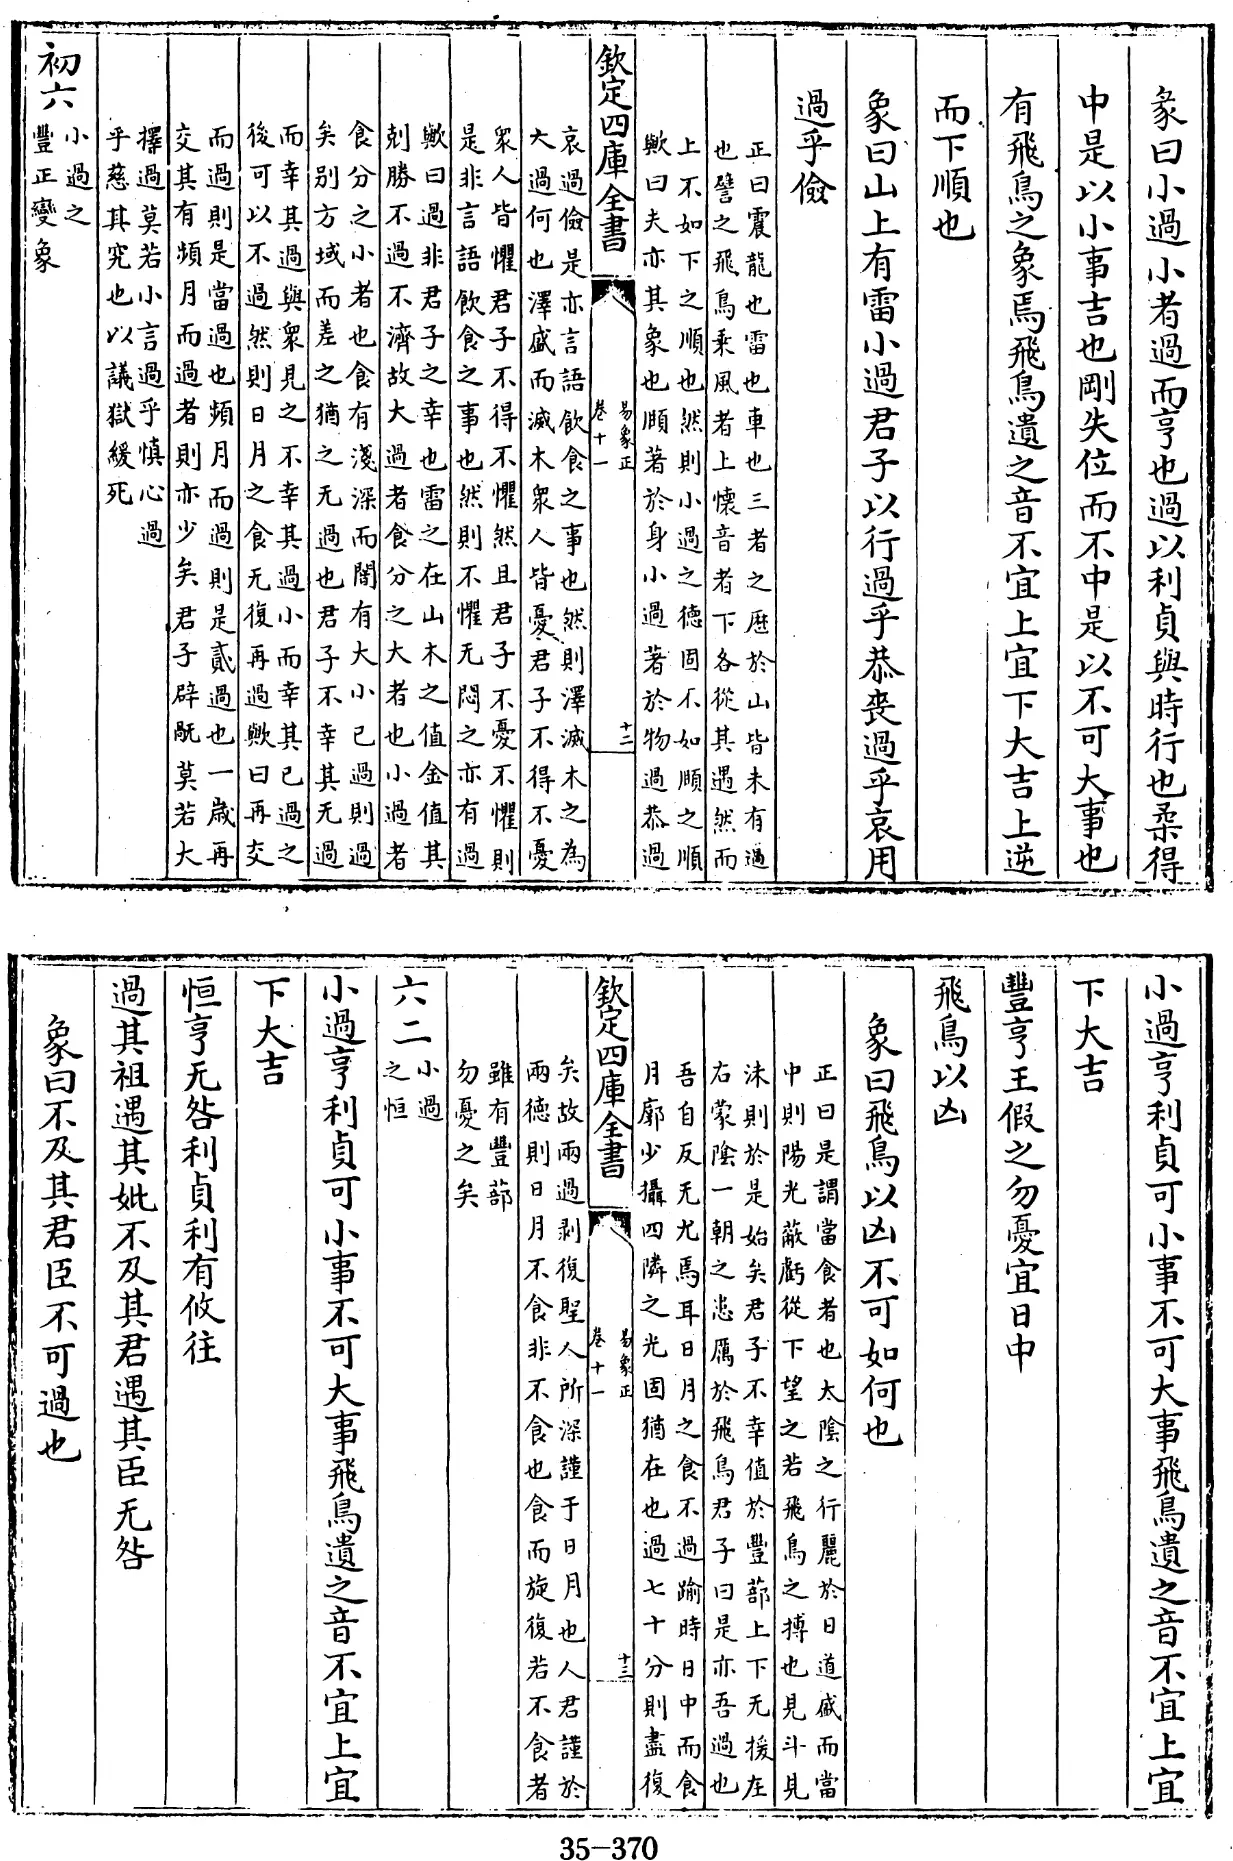 彖曰小過小者過而亨也過以利貞與時行也柔得
中是以小事吉也剛失位而不中是以不可大事也
有飛鳥之象焉飛鳥遺之音不宜上宜下大吉上逆
而下順也
象曰山上有雷小過君子以行過乎恭喪過乎哀用
過乎儉
正曰震龍也雷也車也三者之歷於山皆未有過
也譬之飛鳥乘風者上懷音者下各從其遇然而
上不如下之順也然則小過之德固不如順之順
歟曰夫亦其象也頤著於身小過著於物過恭過
欽定四庫全書
易象正
卷十一
十二
哀過儉是亦言語飲食之事也然則澤滅木之為
大過何也澤盛而滅木衆人皆憂君子不得不憂
衆人皆懼君子不得不懼然且君子不憂不懼則
是非言語飲食之事也然則不懼无悶之亦有過
歟曰過非君子之幸也雷之在山木之值金值其
剋勝不過不濟故大過者食分之大者也小過者
食分之小者也食有淺深而闇有大小已過則過
矣别方域而差之猶之无過也君子不幸其无過
而幸其過與衆見之不幸其過小而幸其已過之
後可以不過然則日月之食无復再過歟曰再交
而過則是當過也頻月而過則是貳過也一歲再
交其有頻月而過者則亦少矣君子辟融莫若大
擇過莫若小言過乎慎心過
乎慈其究也以議獄緩死
初六
小過之
豐正變象
小過亨利貞可小事不可大事飛鳥遺之音不宜上宜
下大吉
豐亨王假之勿憂宜日中
飛鳥以凶
象曰飛鳥以凶不可如何也
正曰是謂當食者也太陰之行麗於日道盛而當
中則陽光蔽虧從下望之若飛鳥之搏也見斗見
沬則於是始矣君子不幸值於豐蔀上下无援左
右蒙陰一朝之恙厲於飛鳥君子曰是亦吾過也
吾自反无尤焉耳日月之食不過踰時日中而食
月廓少攝四隣之光固猶在也過七十分則盡復
欽定四庫全書
易象正
卷十一
十三
矣故兩過剥復聖人所深謹于日月也人君謹於
兩德則日月不食非不食也食而旋復若不食者
雖有豐蔀
勿憂之矣
六二
小過
之恒
小過亨利貞可小事不可大事飛鳥遺之音不宜上宜
下大吉
恒亨无咎利貞利有攸往
過其祖遇其妣不及其君遇其臣无咎
象曰不及其君臣不可過也
35-370